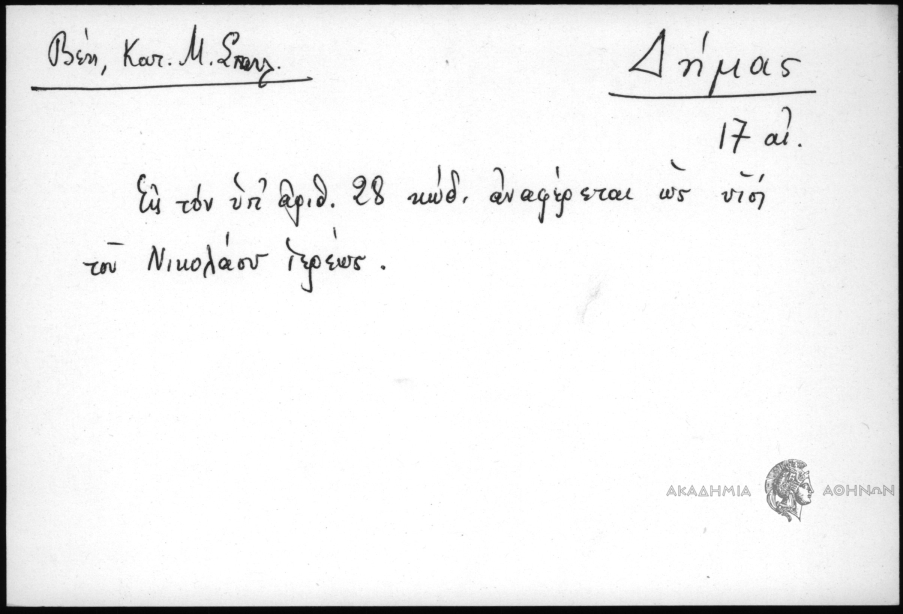 Βέη, Κατ. Μ. Σπηλ.
Δήμας
17 αἰ.
Εἰς τόν ὑπ' ἀριθ. 28 κώδ. ἀναφέρεται ὡς υἱός
τοῦ Νικολάου ἱερέως.
ΑΚΑΔΗΜΙΑ ΑΘΗΝΩΝ